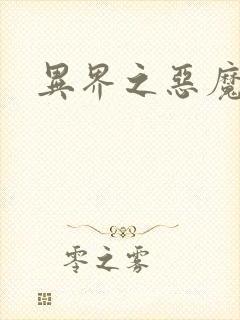 異界之惡魔
零之雾